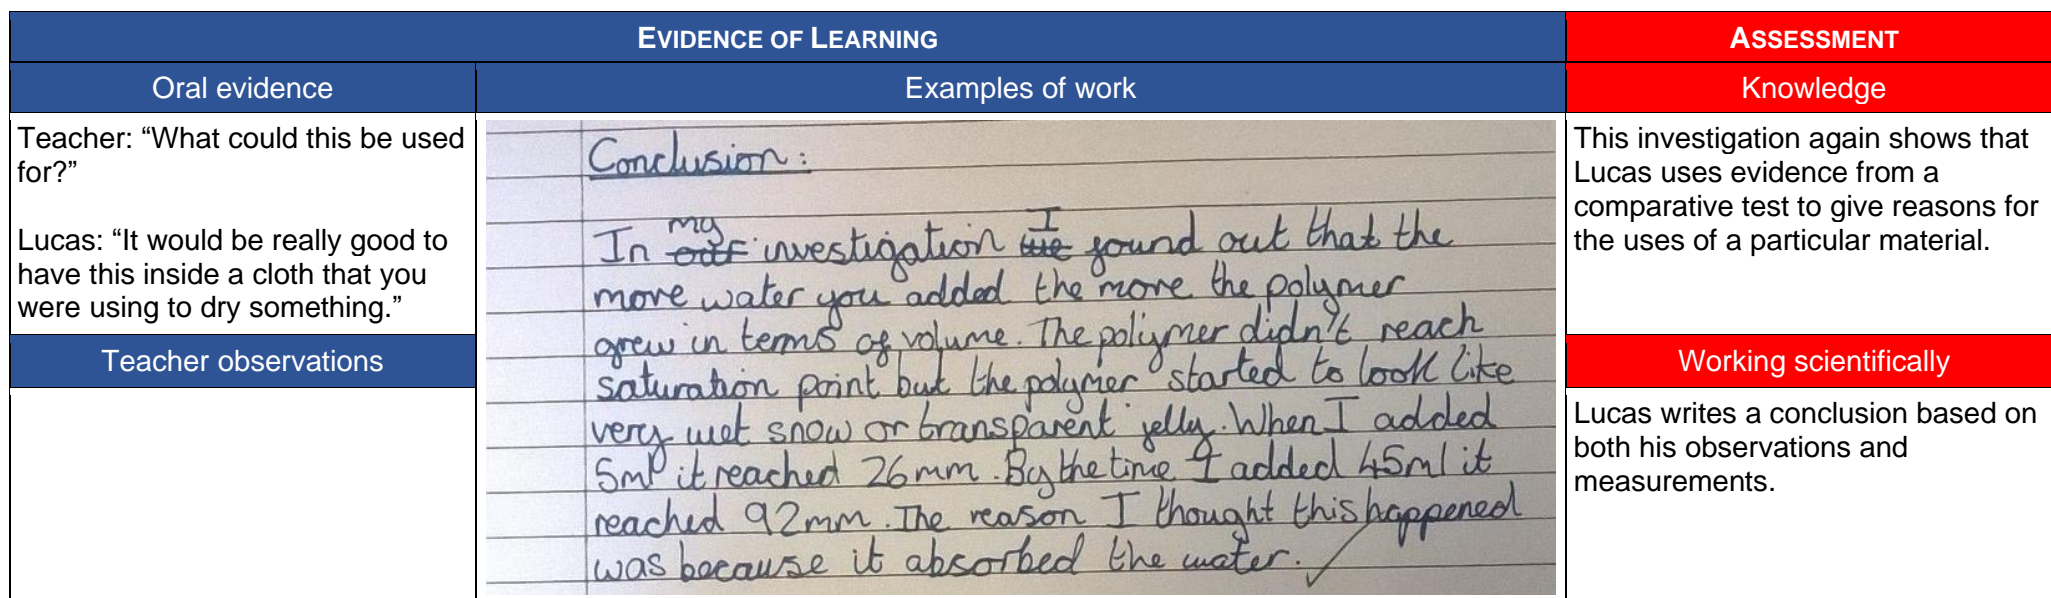 EVIDENCE OF LEARNING
ASSESSMENT
Oral evidence
Examples of work
Knowledge
Teacher: “What could this be used
for?”
Lucas: “It would be really good to
have this inside a cloth that you
were using to dry something.”
Teacher observations
Conclusion:
In our my investigation we I found out that the
more water you added the more the polymer
grew in terms of volume. The polymer didn't reach
saturation point but the polymer started to look like
very wet snow or transparent jelly. When I added
5ml it reached 26mm. By the time I added 45ml it
reached 92mm. The reason I thought this happened
was because it absorbed the water.
This investigation again shows that
Lucas uses evidence from a
comparative test to give reasons for
the uses of a particular material.
Working scientifically
Lucas writes a conclusion based on
both his observations and
measurements.